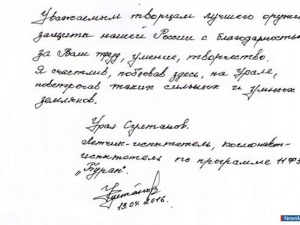 Уважаемым творцам лучшего оружия
защиты нашей России с благодарностью
за Ваш труд, умение, творчество.
Я счастлив, побывав здесь, на Урале,
повстречав таких сильных и умных
земляков.
Урал Султанов.
Летчик-испытатель, космонавт-
испытатель по программе НФЗ
„Буран".
Султанов
13.04.2016.